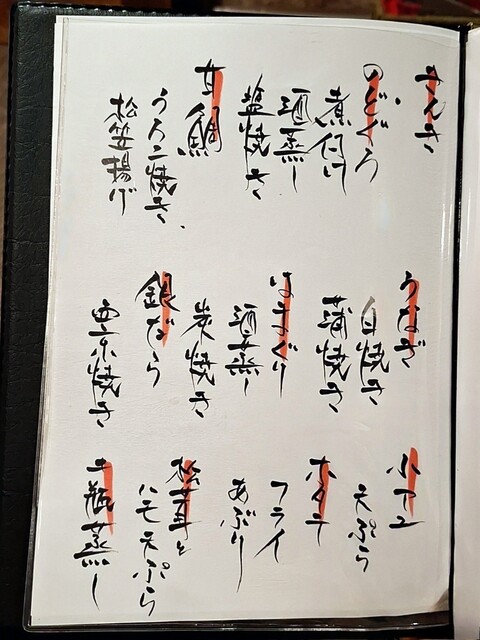 きんき
のどぐろ
煮付け
酒蒸し
塩焼き
甘鯛
うろこ焼き、
松笠揚げ
うなぎ
白焼き
蒲焼き
はまぐり
酒蒸し
炭焼き
銀だら
西京焼き
小アユ
天ぷら
ホタテ
フライ
あぶり
松茸と
ハモ天ぷら
土瓶蒸し